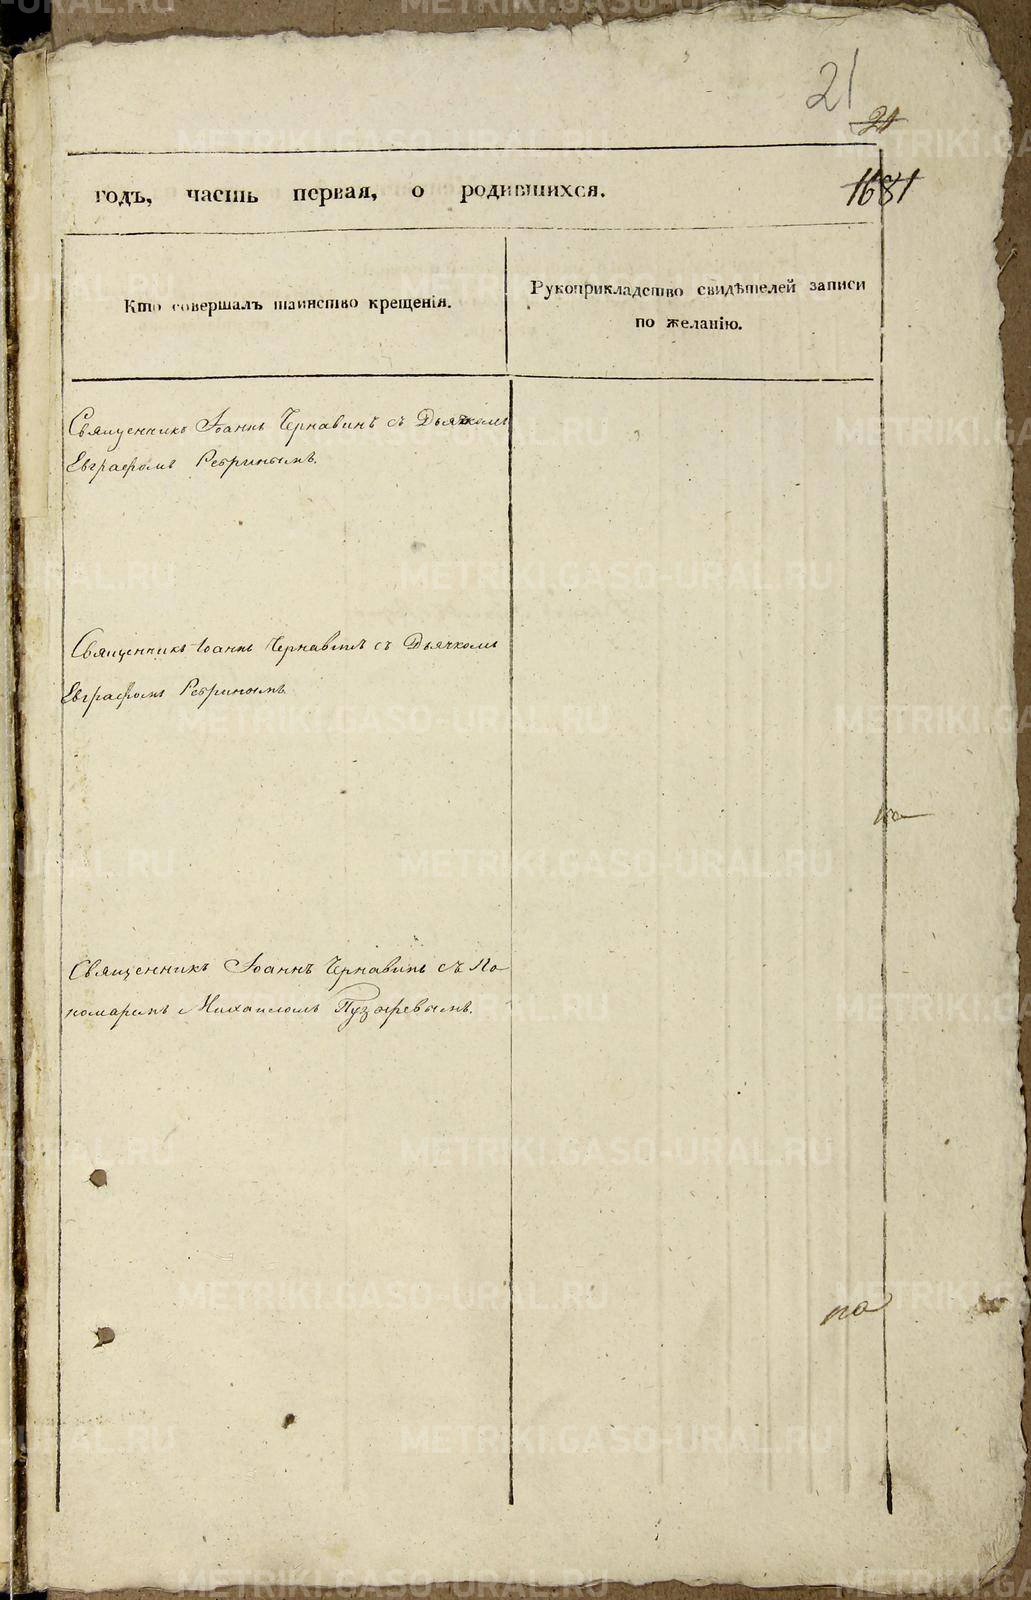 21
21
1681
годъ, часть первая, о родившихся.
Кто совершалъ таинство крещенія.
Рукоприкладство свидѣтелей записи
по желанію.
Священникъ Іоаннъ Чернавинъ съ Дьячкомъ
Евграфомъ Ребринымъ.
Священникъ Іоаннъ Чернавинъ съ Дьячкомъ
Евграфомъ Ребринымъ
Священникъ Іоаннъ Чернавинъ съ По-
номаремъ Михаиломъ Пузыревымъ.
по
METRIKI.GASO-URAL.RU